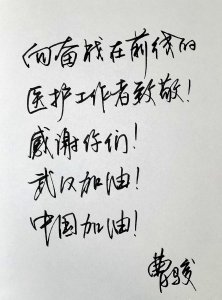 向奋战在前线的
医护工作者致敬!
感谢你们!
武汉加油!
中国加油!
曹骏